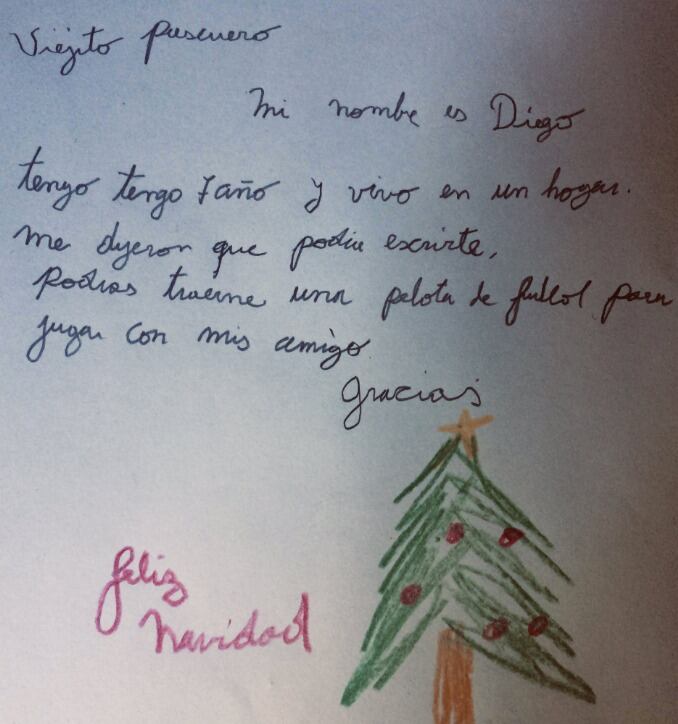 Viejito pascuero
Mi nombre es Diego
tengo tengo 7 año y vivo en un hogar.
me dijeron que podia escrirte,
Podrias traerme una pelota de futbol para
jugar con mis amigo
gracias
feliz
navidad